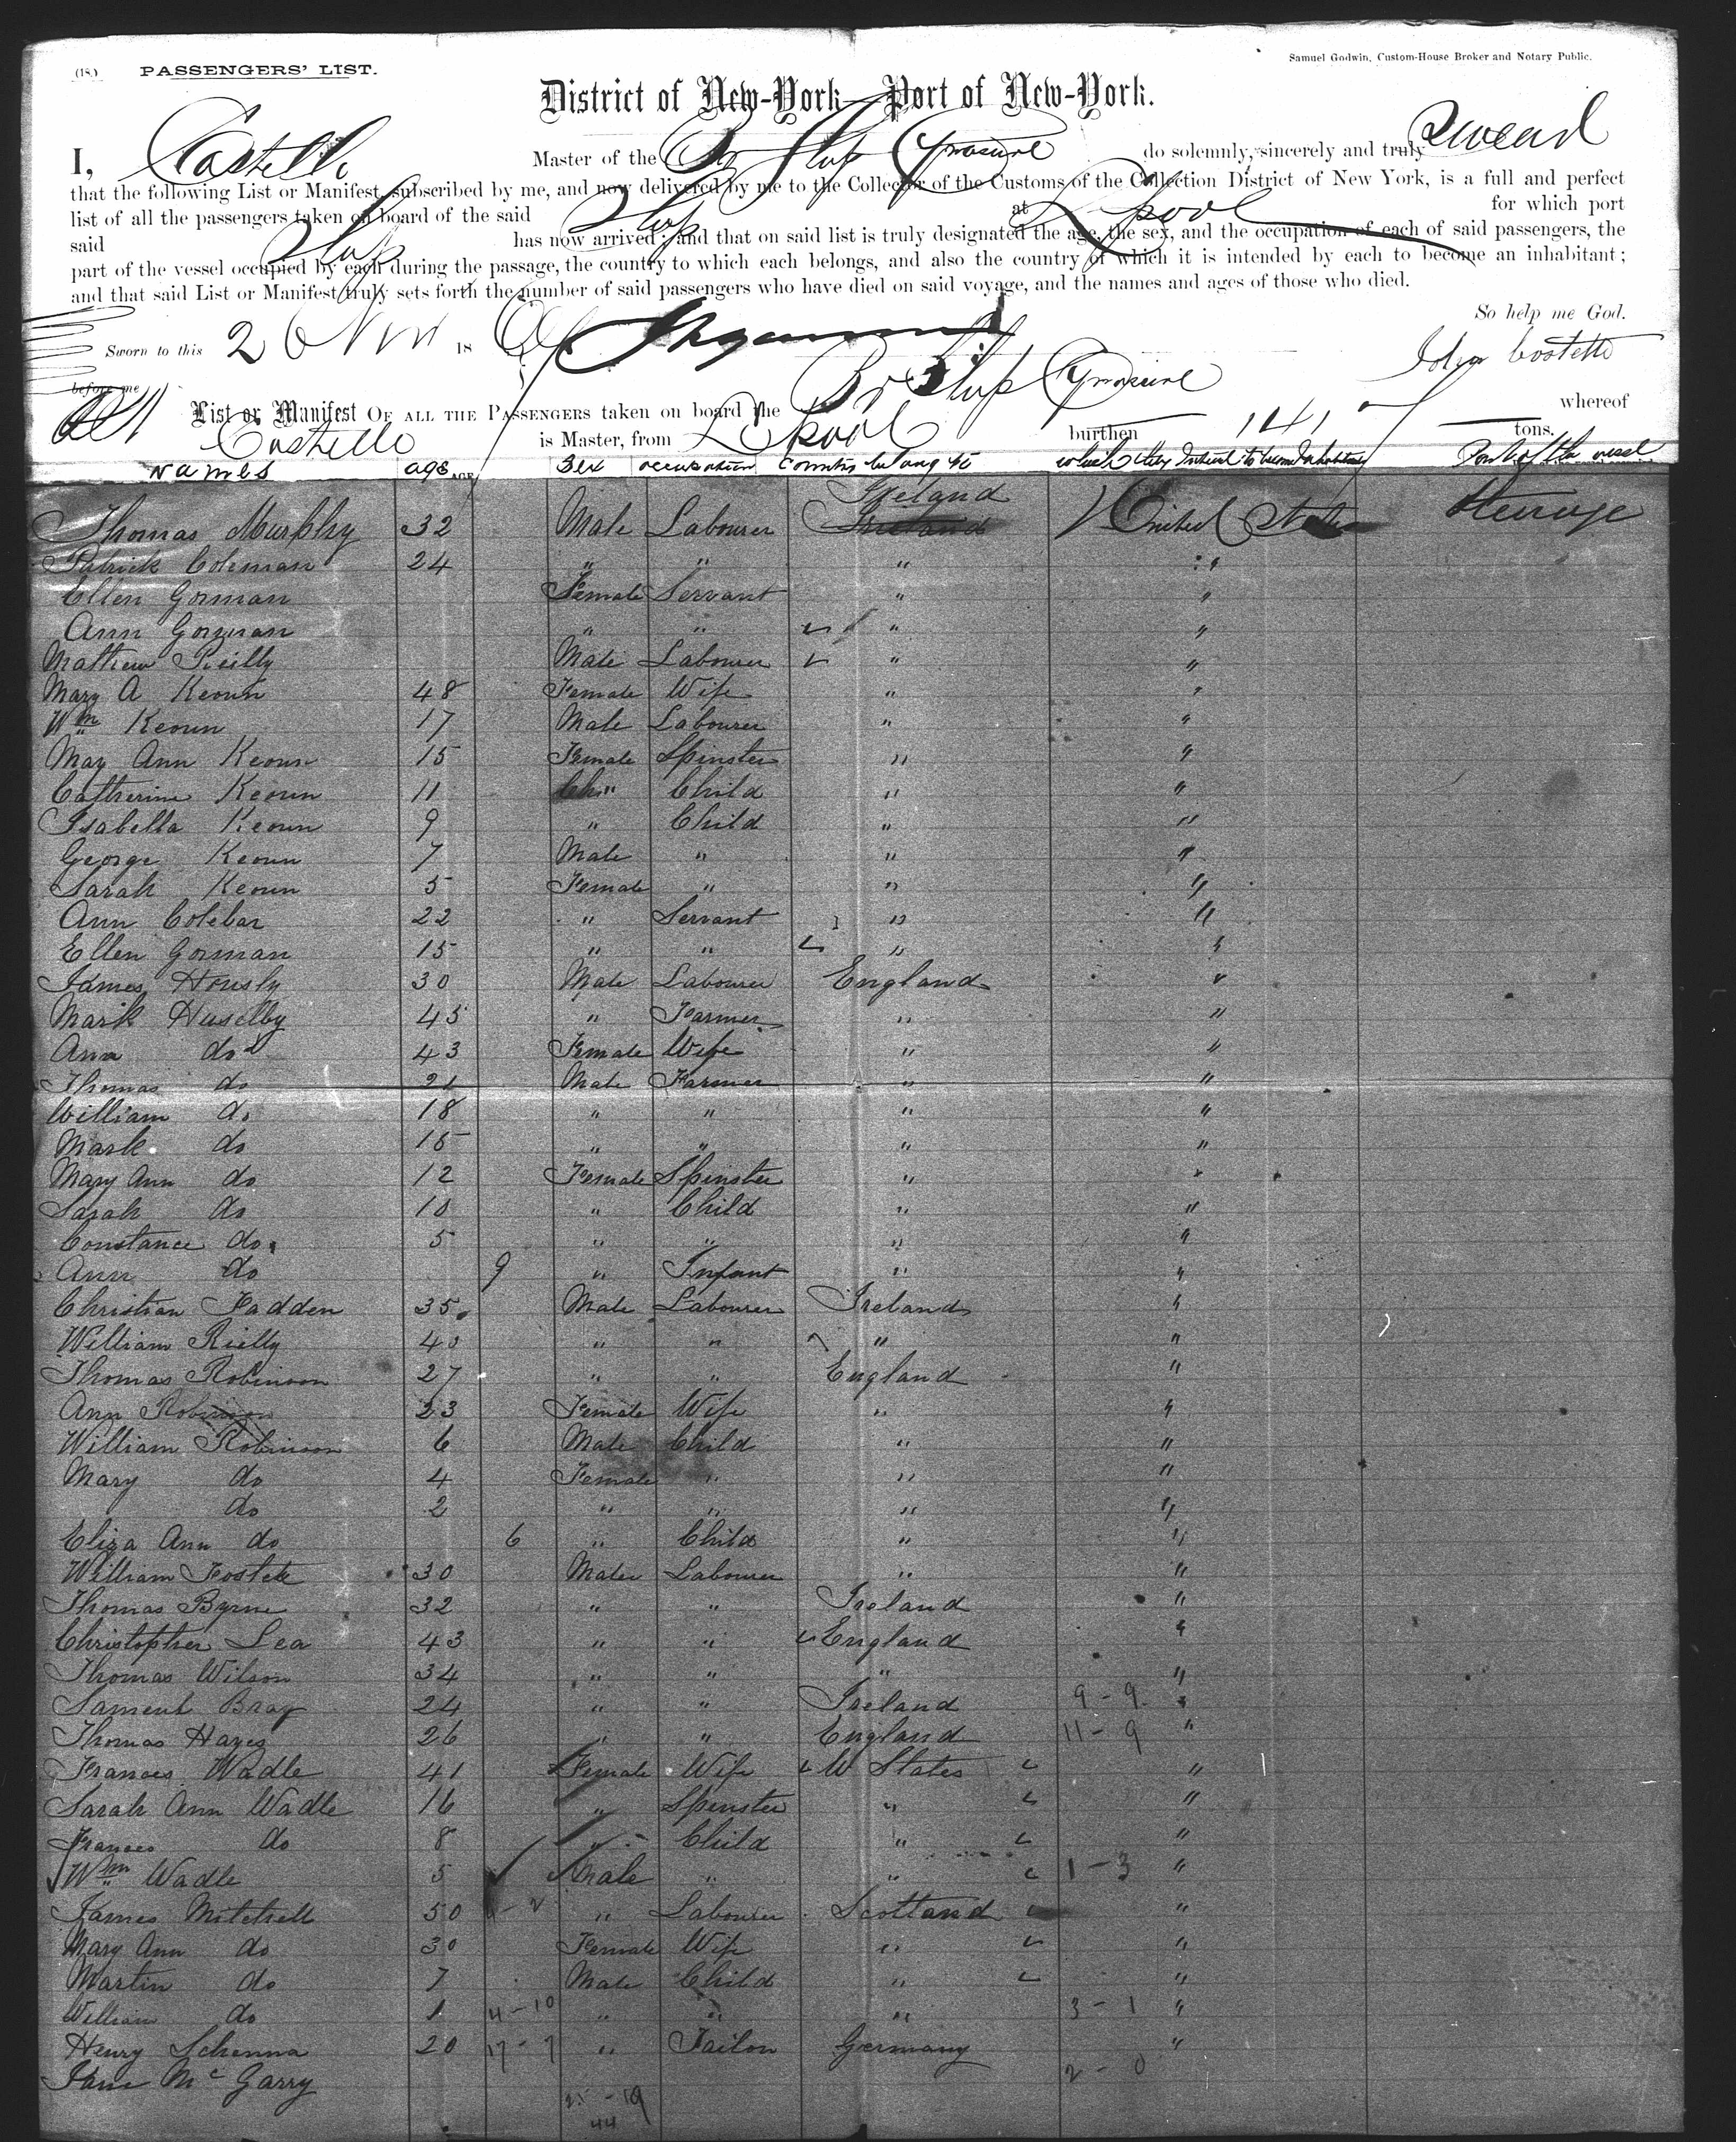 (18.) PASSENGERS' LIST.
Samuel Godwin, Custom-House Broker and Notary Public.
District of New-York—Port of New-York.
I, Costello Master of the Br Ship Cynosure do solemnly, sincerely and truly swear
that the following List or Manifest, subscribed by me, and now delivered by me to the Collector of the Customs of the Collection District of New York, is a full and perfect
list of all the passengers taken on board of the said Ship at L'pool for which port
said Ship has now arrived; and that on said list is truly designated the age, the sex, and the occupation of each of said passengers, the
part of the vessel occupied by each during the passage, the country to which each belongs, and also the country of which it is intended by each to become an inhabitant;
and that said List or Manifest truly sets forth the number of said passengers who have died on said voyage, and the names and ages of those who died.
So help me God.
Sworn to this 2 Nov 18
before me
List or Manifest OF ALL THE PASSENGERS taken on board the Br Ship Cynosure whereof
Costello is Master, from L'pool burthen tons.
names age AGE Sex occupation Country belong to which they Intend to become Inhabitants Part of the vessel
Ireland
Thomas Murphy 32 Male Labourer Ireland United States Steerage
Patrick Coleman 24 " " " "
Ellen Gorman Female Servant " "
Ann Gorman " " " "
Mathew Reilly Male Labourer " "
Mary A Keown 48 Female Wife " "
Wm Keown 17 Male Labourer " "
May Ann Keown 15 Female Spinster " "
Catherine Keown 11 Ch " Child " "
Isabella Keown 9 " Child " "
George Keown 7 Male " " "
Sarah Keown 5 Female " " "
Ann Colebar 22 " Servant " "
Ellen Gorman 15 " " " "
James Hously 30 Male Labourer England "
Mark Huselby 45 " Farmer " "
Ann do 43 Female Wife " "
Thomas do 21 Male Farmer " "
William do 18 " " " "
Mark do 15 " " " "
Mary Ann do 12 Female Spinster " "
Sarah do 10 " Child " "
Constance do 5 " " " "
Ann do 9 " Infant " "
Christian Fadden 35 Male Labourer Ireland "
William Rielly 40 " " " "
Thomas Robinson 27 " " England "
Ann Robinson 23 Female Wife " "
William Robinson 6 Male Child " "
Mary do 4 Female " " "
do 2 " " " "
Eliza Ann do 6 " Child " "
William Foster 30 Male Labourer " "
Thomas Byrne 32 " " Ireland "
Christopher Lea 43 " " England "
Thomas Wilson 34 " " " "
Bray 24 " " Ireland 9-9 "
Thomas Hayes 26 " " England 11-9 "
Frances Wadle 41 Female Wife U States "
Sarah Ann Wadle 16 " Spinster " "
Frances do 8 " Child " "
Wm Wadle 5 Male " " 1-3 "
James Mitchell 50 " Labourer Scotland "
Mary Ann do 30 Female Wife " "
Martin do 7 Male Child " "
William do 1 4-10 " " " 3-1 "
Henry Schenna 20 17-7 " Tailor Germany "
Jane Mc Garry 2-0
44